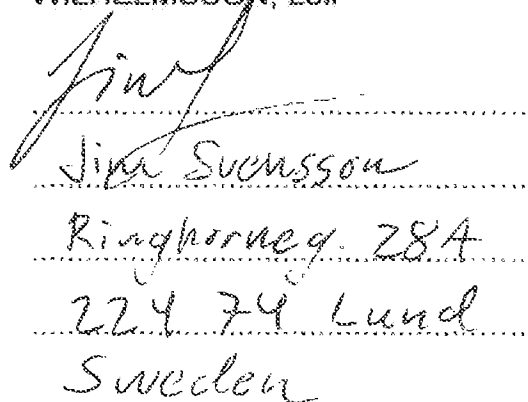 Jim
Jim Svensson
Ringhorneg. 28A
224 74 Lund
Sweden